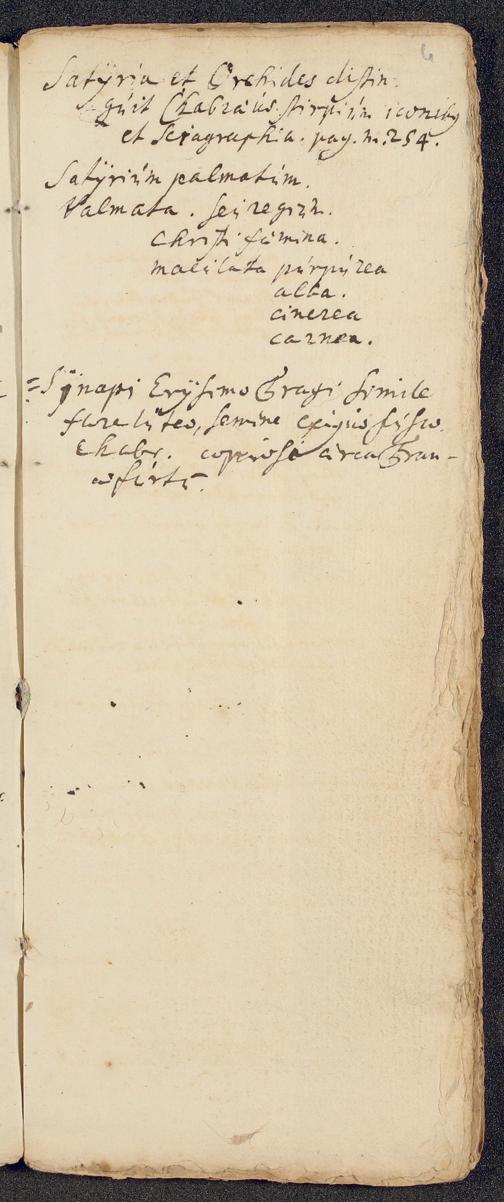 6
Satÿria et Orchides distin
guit Chabraeus stirpium iconibus
et Sciagraphia. pag. m. 254.
Satÿrium palmatum.
Palmata. seu regium.
Christi faemina.
maculata purpurea
alba.
cinerea
carnea.
=Sÿnapi Erÿsimo Tragi simile
flore luteo, semine exiguo fusco.
Chabr. copiosè circa Fran-
cofurtū.